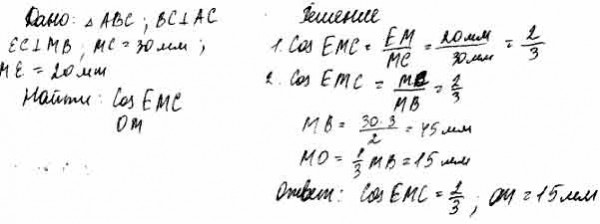 Дано: △ABC; BC⊥AC
EC⊥MB; MC=30мм;
ME=20мм
Найти: Cos EMC
OM
Решение
1. Cos EMC = EM/MC = 20мм/30мм = 2/3
2. Cos EMC = MC/MB = 2/3
MB = 30·3/2 = 45мм
MO = 1/3 MB = 15мм
Ответ: Cos EMC = 2/3; OM = 15мм